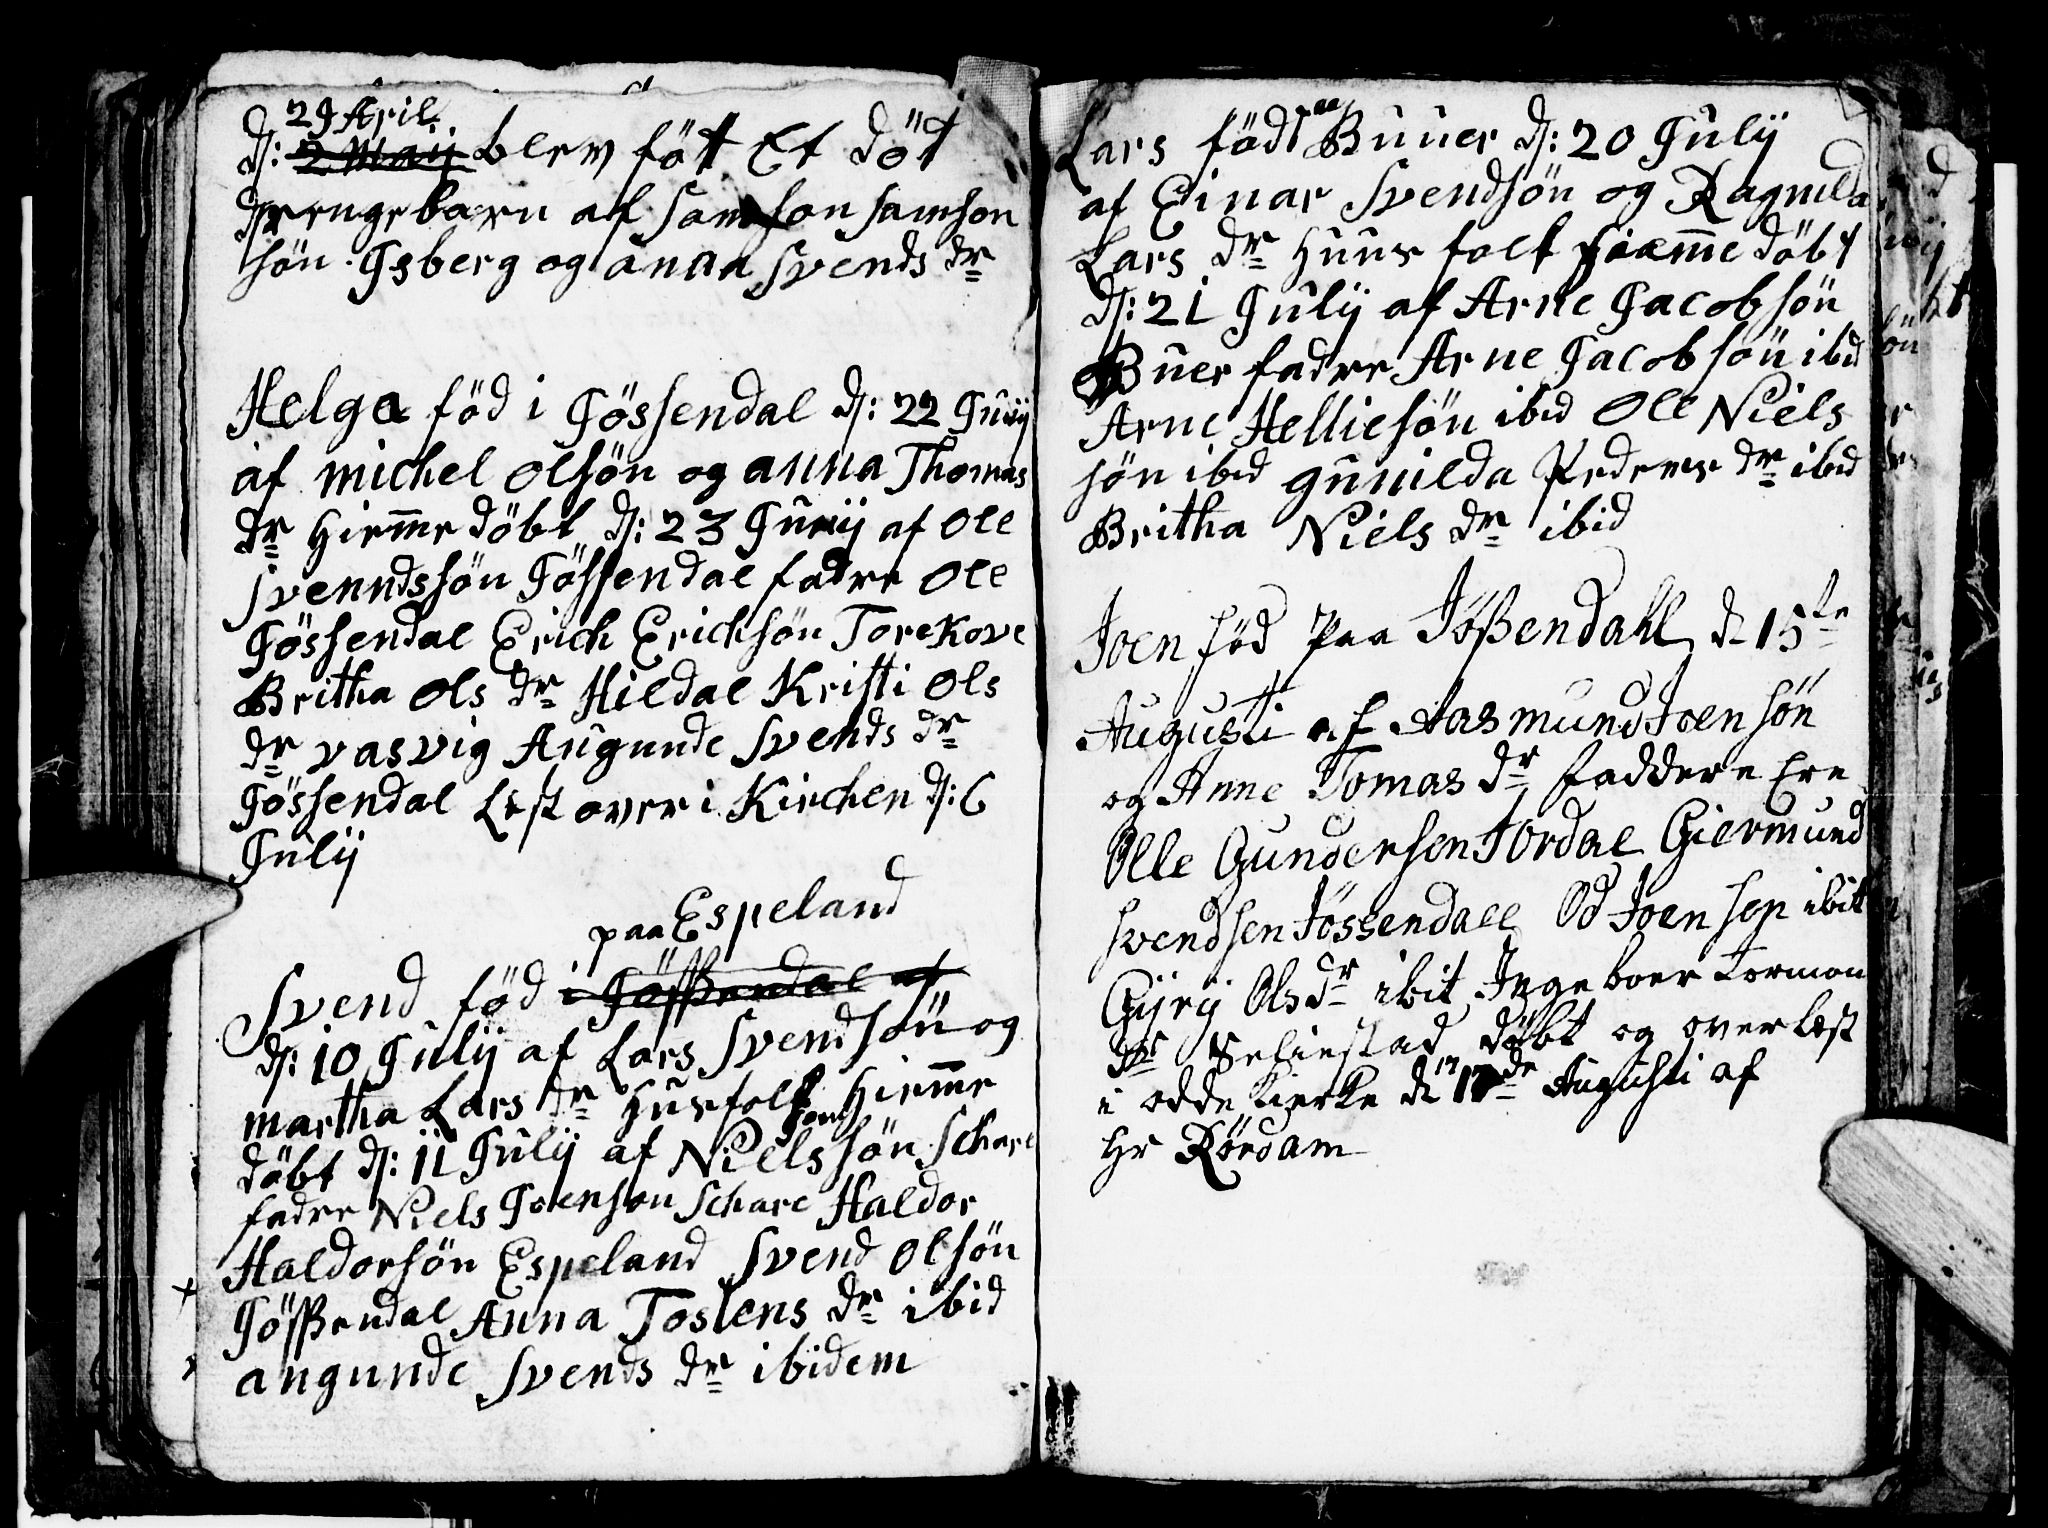 29 Aril
d: 2 Maij blev föt Et döt
drengebarn af Samson samson
sön Jsberg og anna Svends dr
Helga föd i Jössendal d: 22 Junij
af michel olsön og anna Thomas
dr hiemme döbt d: 23 Junij af Ole
Svenndssön Jössendal fadre Ole
Jössendal Erich Erichsön Torekove
Britha Ols dr Hildal Kristi Ols
dr vasvig Augunde Svends dr
Jössendal Lest over i Kirchen d: 6
Julij
paa Espeland
Svend föd i Jösßendal af
d: 10 Julij af Lars Svendsön og
martha Lars dr husfolk hiemme
döbt d: 11 Julij af Niels Joen sön Schare
fadre Niels Joenson Schare Haldor
Haldorsön Espeland Svend Olsön
Jösßendal Anna Tostens dr ibid
angunde Svends dr ibidem
Lars födt aa Buuer d: 20 Julij
af Einar Svendsön og Ragnilda
Lars dr huus folk hiæmme döbt
d: 21 Julij af Arne Jacobsön
Buer fadre Arne Jacobsön ibid
Arne Helliesön ibid Ole Niels
sön ibid gunilda Peders dr ibid
Britha Niels dr ibid
Joen föd Paa Jößendahl d 15te
Augusti af Aasmund Joensön
og Anne Tomas dr faddere Ere
Olle Gundersen Jordal Giermund
svendsen Jössendall Od Joensen ibit
Gyrij Ols dr ibit Ingeboer Tormon
dr Seljestad döbt og overlæst
i odde Kierke d 17de Augusti af
Hr Rördam